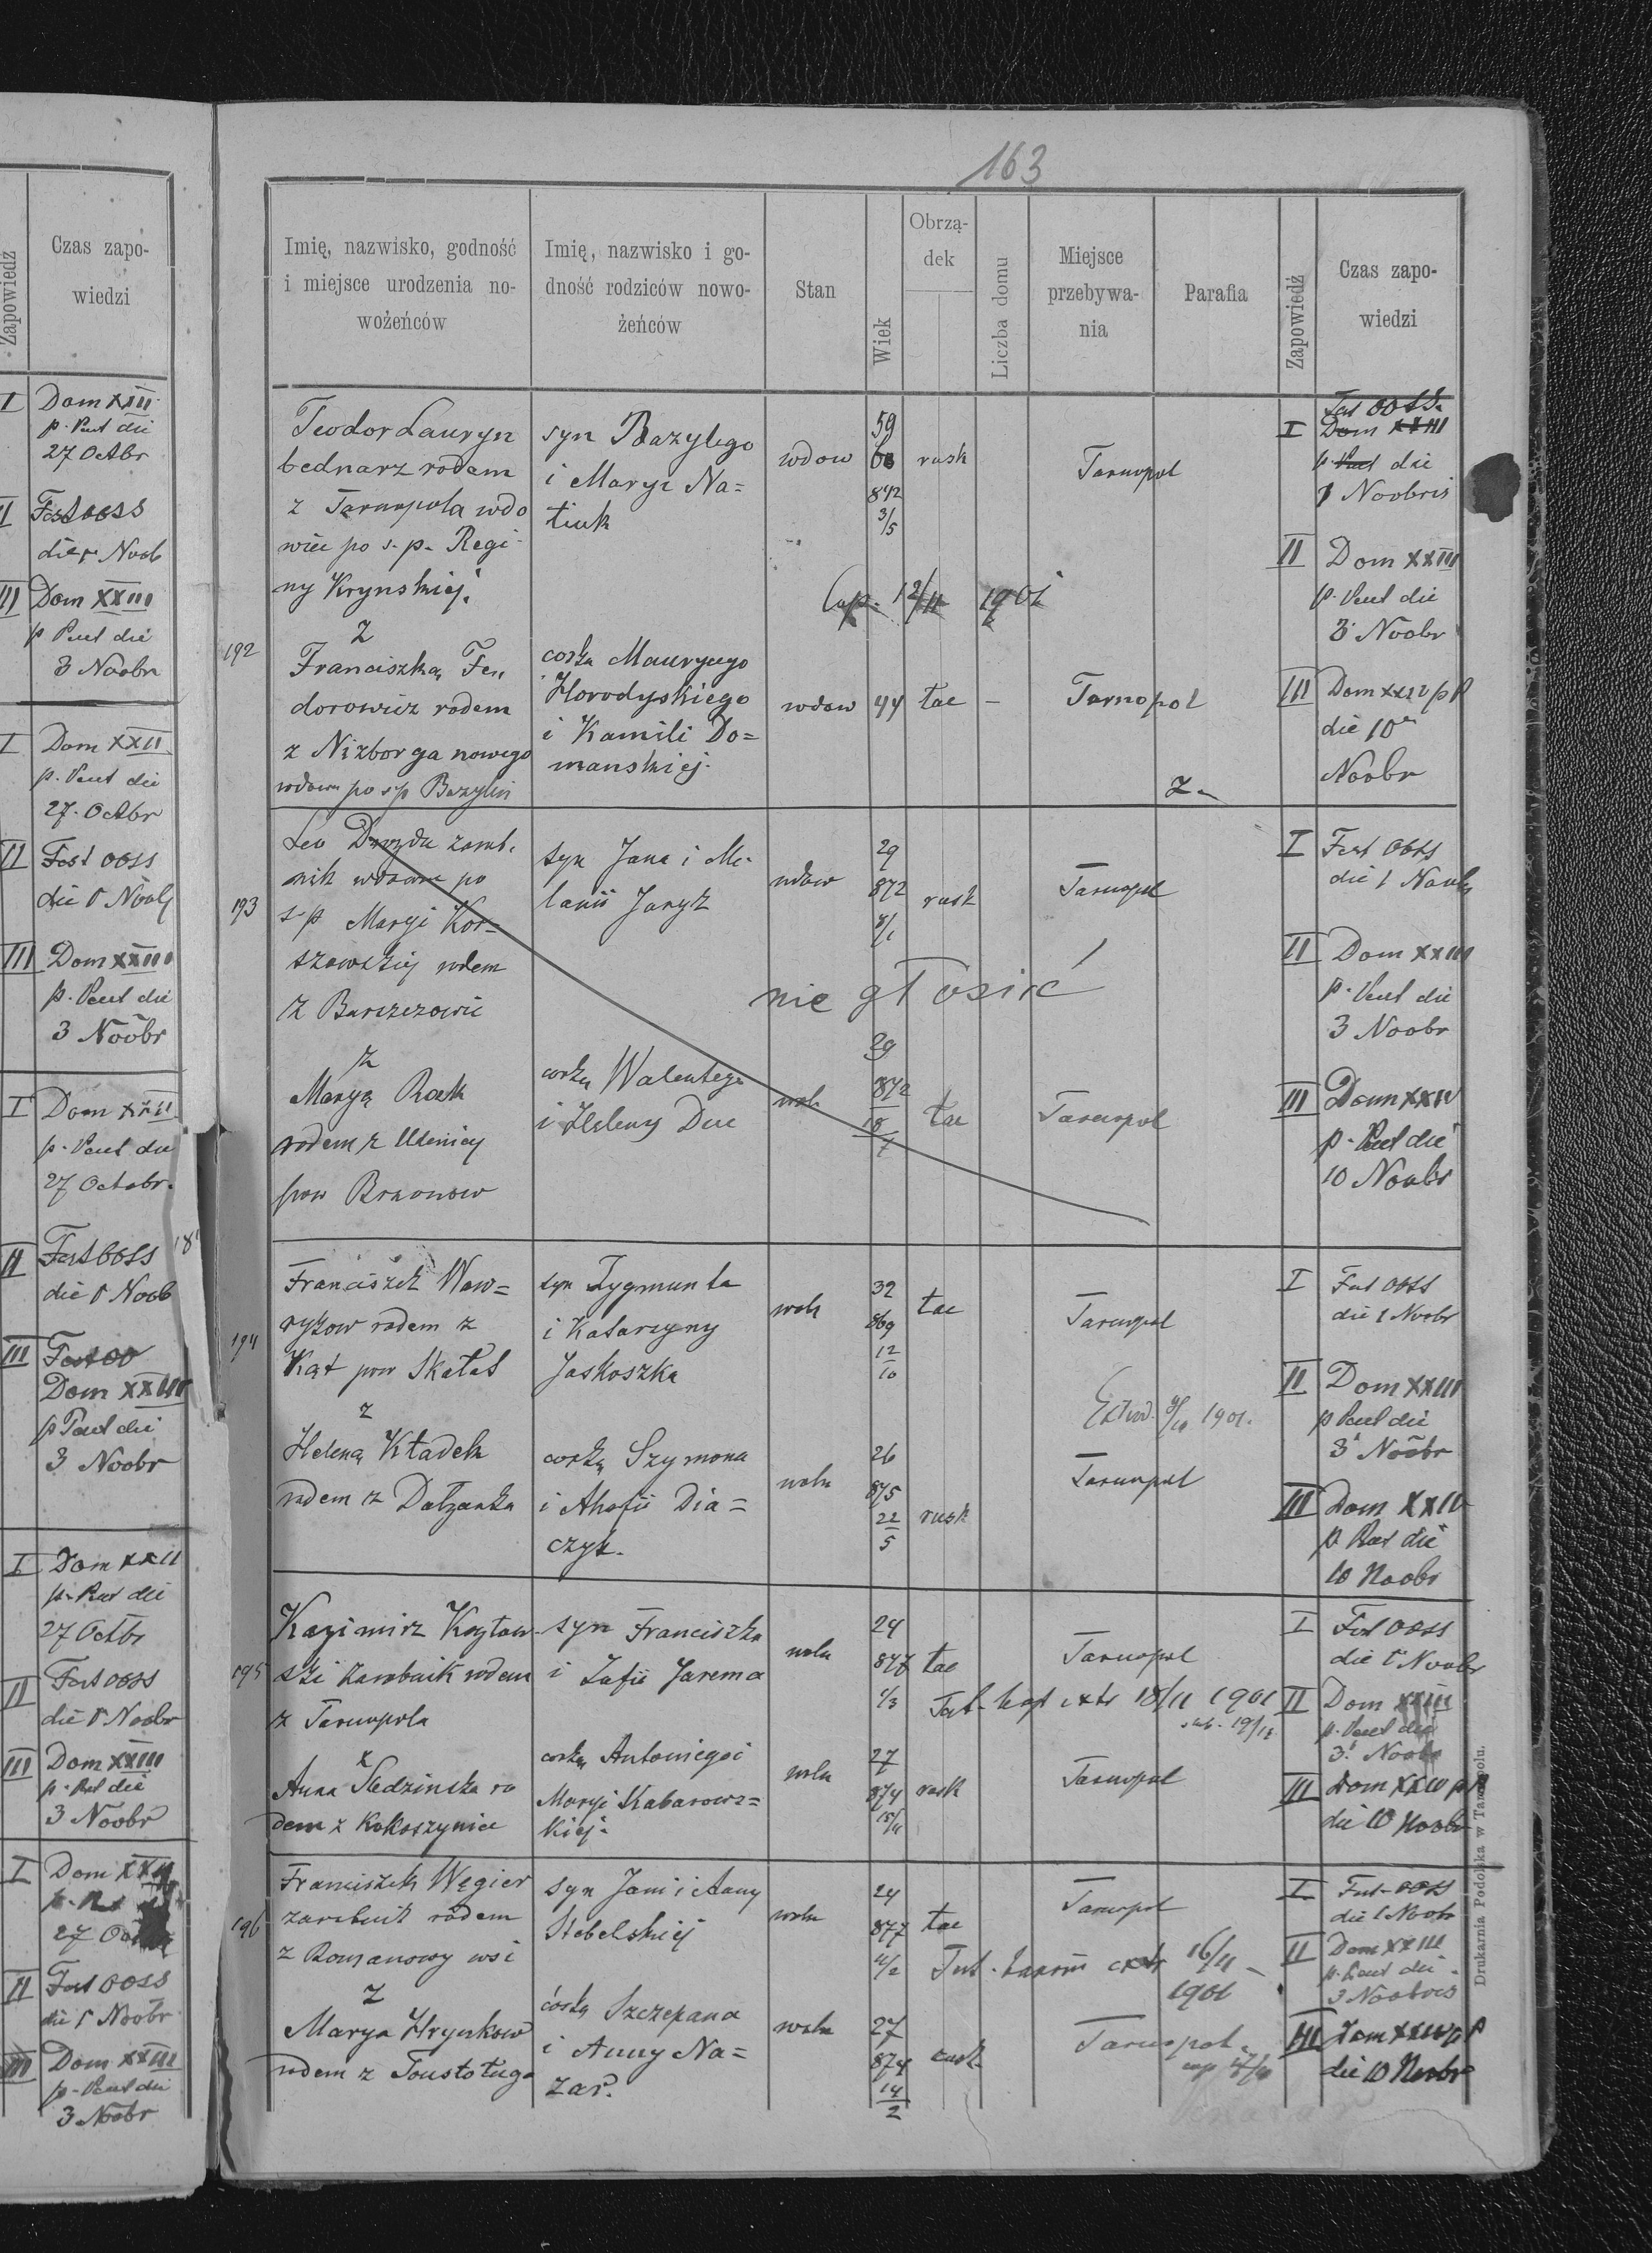 Zapowiedź
Czas zapo-
wiedzi
I Dom XXII
p. Pent die
27 Octbr
II Fest OOSS
die 1 Noob
III Dom XXIII
p Pent die
3 Noobr
I Dom XXII
p. Pent die
27. Octbr
II Fest OOSS
die 1 Noob
III Dom XXIII
p. Pent die
3 Noobr
I Dom XXII
p. Pent die
27 Octobr.
II Fest OOSS
die 1 Noob
III Fest OO
Dom XXIII
p Pent die
3 Noobr
I Dom XXII
p. Pent die
27 Octbr
II Fest OOSS
die 1 Noobr
III Dom XXIII
p. Pent die
3 Noobr
I Dom XXII
27
II Fest OOSS
die 1 Noobr
III Dom XXIII
p. Pent die
3 Noobr
163
Imię, nazwisko, godność
i miejsce urodzenia no-
wożeńców
Imię, nazwisko i go-
dność rodziców nowo-
żeńców
Stan
Wiek
Obrzą-
dek
Liczba domu
Miejsce
przebywa-
nia
Parafia
Zapowiedź
Czas zapo-
wiedzi
192
Teodor Lauryn
bednarz rodem
z Tarnopola wdo
wiec po s. p. Regi-
ny Krynskiej.
z
Franciszką Fe
dorowicz rodem
z Niżborga nowego
wdowa po sp Bazylim
syn Bazylego
i Maryi Na=
tiuk
corka Maurycego
Horodyskiego
i Kamili Do=
manskiej.
wdow
59
842
3/5
rusk
Tarnopol
Cop. 12/11 1901
wdow 44 łac –
Tarnopol
Z.
I Fest OOSS.
Dom XXIII
p. Pent die
1 Noobris
II Dom XXIII
p. Pent die
3 Noobr
III Dom XXIV p P
die 10
Noobr
193
Leo Drozda zarob.
nik wdowiec po
s p Maryi Kor=
szowskiej rodem
z Barszczowic
z
Maryą Rak
rodem z
pow
syn Jana i Me-
lanii Jaryk
corką Walentego
i Heleny Duc
wdow
29
872
8/1
rusk
Tarnopol
nie głosić
woln
29
872
18
łac
Tarnopol
I Fest OOSS
die 1 Noobr
II Dom XXIII
p. Pent die
3 Noobr
III Dom XXIV
p. Pent die
10 Noobr
194
Franciszek Waw=
ryków rodem z
Kąt pow Skałat
z
Heleną Kładek
rodem z Dołżanka
syn Zygmunta
i Katarzyny
Jaskoszka
corką Szymona
i Ahafii Dia=
czyk.
woln
32
869
12
10
łac
Tarnopol
1901.
woln
26
875
22
5
rusk
Tarnopol
I Fest OOSS
die 1 Noobr
II Dom XXIII
p Pent die
3 Noobr
III Dom XXIV
p Pent die
10 Noobr
195
Kazimirz Kozłow-
ski zarobnik rodem
z Tarnopola
z
Anna Śledzinska ro
dem z Kokoszyniec
syn Franciszka
i Zofii Jarema
corką Antoniego i
Maryi Kabarows=
kiej.
woln
24
877
1/3
łac
Tarnopol
extr 18/11 1901
woln
27
874
15/11
rusk
Tarnopol
I Fest OOSS
die 1 Noobr
II Dom XXIII
p. Pent die
3 Noobr
III Dom XXIV p P
die 10 Noobr
196
Franciszek Węgier
zarobnik rodem
z Romanowy wsi
z
Marya Hrynkow
rodem z Toustoługa
syn Jana i Anny
Stebelskiej
córką Szczepana
i Anny Na=
zar.
woln
24
877
11/2
łac
Tarnopol
extr 16/11
1901
woln
27
874
14
2
rusk
Tarnopol.
I Fest OOSS
die 1 Noobr
II Dom XXIII
p. Pent die
3 Noobris
III Dom XXIV p P
die 10 Noobr
Drukarnia Podolska w Tarnopolu.